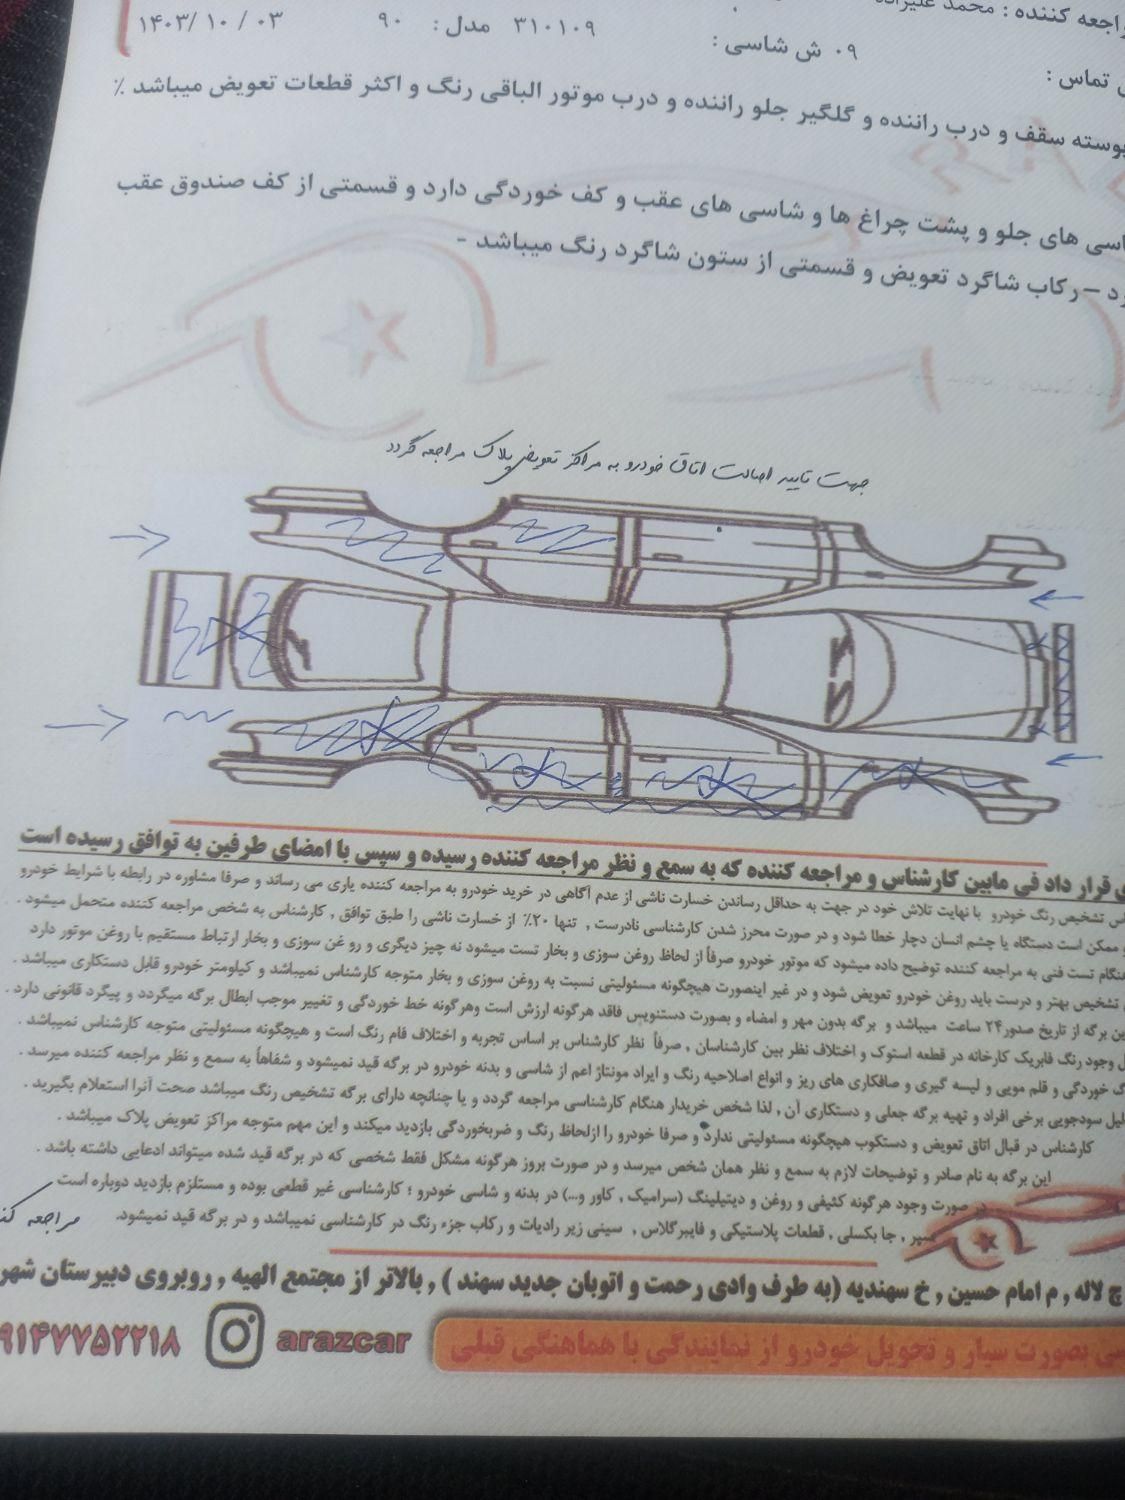 راجعه کننده : محمد علیزاده
۰۹ ش شاسی : ۳۱۰۱۰۹ مدل : ۹۰ ۱۴۰۳/ ۱۰ / ۰۳
تماس :
سقف و درب راننده و گلگیر جلو راننده و درب موتور الباقی رنگ و اکثر قطعات تعویض میباشد ٪
اسی های جلو و پشت چراغ ها و شاسی های عقب و کف خوردگی دارد و قسمتی از کف صندوق عقب
رد – رکاب شاگرد تعویض و قسمتی از ستون شاگرد رنگ میباشد -
جهت تایید اصالت اتاق خودرو به مراکز تعویض پلاک مراجعه گردد
قرار داد فی مابین کارشناس و مراجعه کننده که به سمع و نظر مراجعه کننده رسیده و سپس با امضای طرفین به توافق رسیده است
تشخیص رنگ خودرو با نهایت تلاش خود در جهت به حداقل رساندن خسارت ناشی از عدم آگاهی در خرید خودرو به مراجعه کننده یاری می رساند و صرفا مشاوره در رابطه با شرایط خودرو
و ممکن است دستگاه یا چشم انسان دچار خطا شود و در صورت محرز شدن کارشناسی نادرست , تنها ۲۰٪ از خسارت ناشی را طبق توافق , کارشناس به شخص مراجعه کننده متحمل میشود .
هنگام تست فنی به مراجعه کننده توضیح داده میشود که موتور خودرو صرفاً از لحاظ روغن سوزی و بخار تست میشود نه چیز دیگری و رو غن سوزی و بخار ارتباط مستقیم با روغن موتور دارد
تشخیص بهتر و درست باید روغن خودرو تعویض شود و در غیر اینصورت هیچگونه مسئولیتی نسبت به روغن سوزی و بخار متوجه کارشناس نمیباشد و کیلومتر خودرو قابل دستکاری میباشد .
این برگه از تاریخ صدور ۲۴ ساعت میباشد و برگه بدون مهر و امضاء و بصورت دستنویس فاقد هرگونه ارزش است وهرگونه خط خوردگی و تغییر موجب ابطال برگه میگردد و پیگرد قانونی دارد .
وجود رنگ فابریک کارخانه در قطعه استوک و اختلاف نظر بین کارشناسان , صرفاً نظر کارشناس بر اساس تجربه و اختلاف فام رنگ است و هیچگونه مسئولیتی متوجه کارشناس نمیباشد .
خوردگی و قلم مویی و لیسه گیری و صافکاری های ریز و انواع اصلاحیه رنگ و ایراد مونتاژ اعم از شاسی و بدنه خودرو در برگه قید نمیشود و شفاهاً به سمع و نظر مراجعه کننده میرسد .
سودجویی برخی افراد و تهیه برگه جعلی و دستکاری آن , لذا شخص خریدار هنگام کارشناسی مراجعه گردد و یا چنانچه دارای برگه تشخیص رنگ میباشد صحت آنرا استعلام بگیرید .
کارشناس در قبال اتاق تعویض و دستکوب هیچگونه مسئولیتی ندارد و صرفا خودرو را ازلحاظ رنگ و ضربخوردگی بازدید میکند و این مهم متوجه مراکز تعویض پلاک میباشد .
این برگه به نام صادر و توضیحات لازم به سمع و نظر همان شخص میرسد و در صورت بروز هرگونه مشکل فقط شخصی که در برگه قید شده میتواند ادعایی داشته باشد .
در صورت وجود هرگونه کثیفی و روغن و دیتیلینگ (سرامیک , کاور و...) در بدنه و شاسی خودرو ؛ کارشناسی غیر قطعی بوده و مستلزم بازدید دوباره است
سپر , جا بکسلی , قطعات پلاستیکی و فایبرگلاس , سینی زیر رادیات و رکاب جزء رنگ در کارشناسی نمیباشد و در برگه قید نمیشود.
مراجعه کن
چ لاله , م امام حسین , خ سهندیه (به طرف وادی رحمت و اتوبان جدید سهند ) , بالاتر از مجتمع الهیه , روبروی دبیرستان شهر
بصورت سیار و تحویل خودرو از نمایندگی با هماهنگی قبلی
arazcar
۹۱۴۷۷۵۲۲۱۸